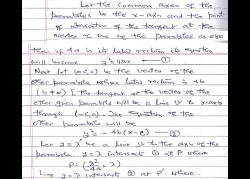 Let the common axes of the
parabolas be the x-axis and the point
of intersection of the tangent at the
vertex of one of the parabolas as origin
then if 4a is its latus rectum its equation
will become y²=4ax. — ①
Next let (-c,0) be the vertex of the
other parabola whose latus rectum is 4b
the tangent at the vertex of the
other given parabola will be a line ∥ to y-axis
through (-c,0). The equation of the
other parabola will be
y² = 4b(x-c) — ②
Let y=λ be a line ∥ to the axis of the
parabola. y=λ intersect ① at P where
P: (λ²/4a, λ)
Line y=λ intersect ② at P' where.